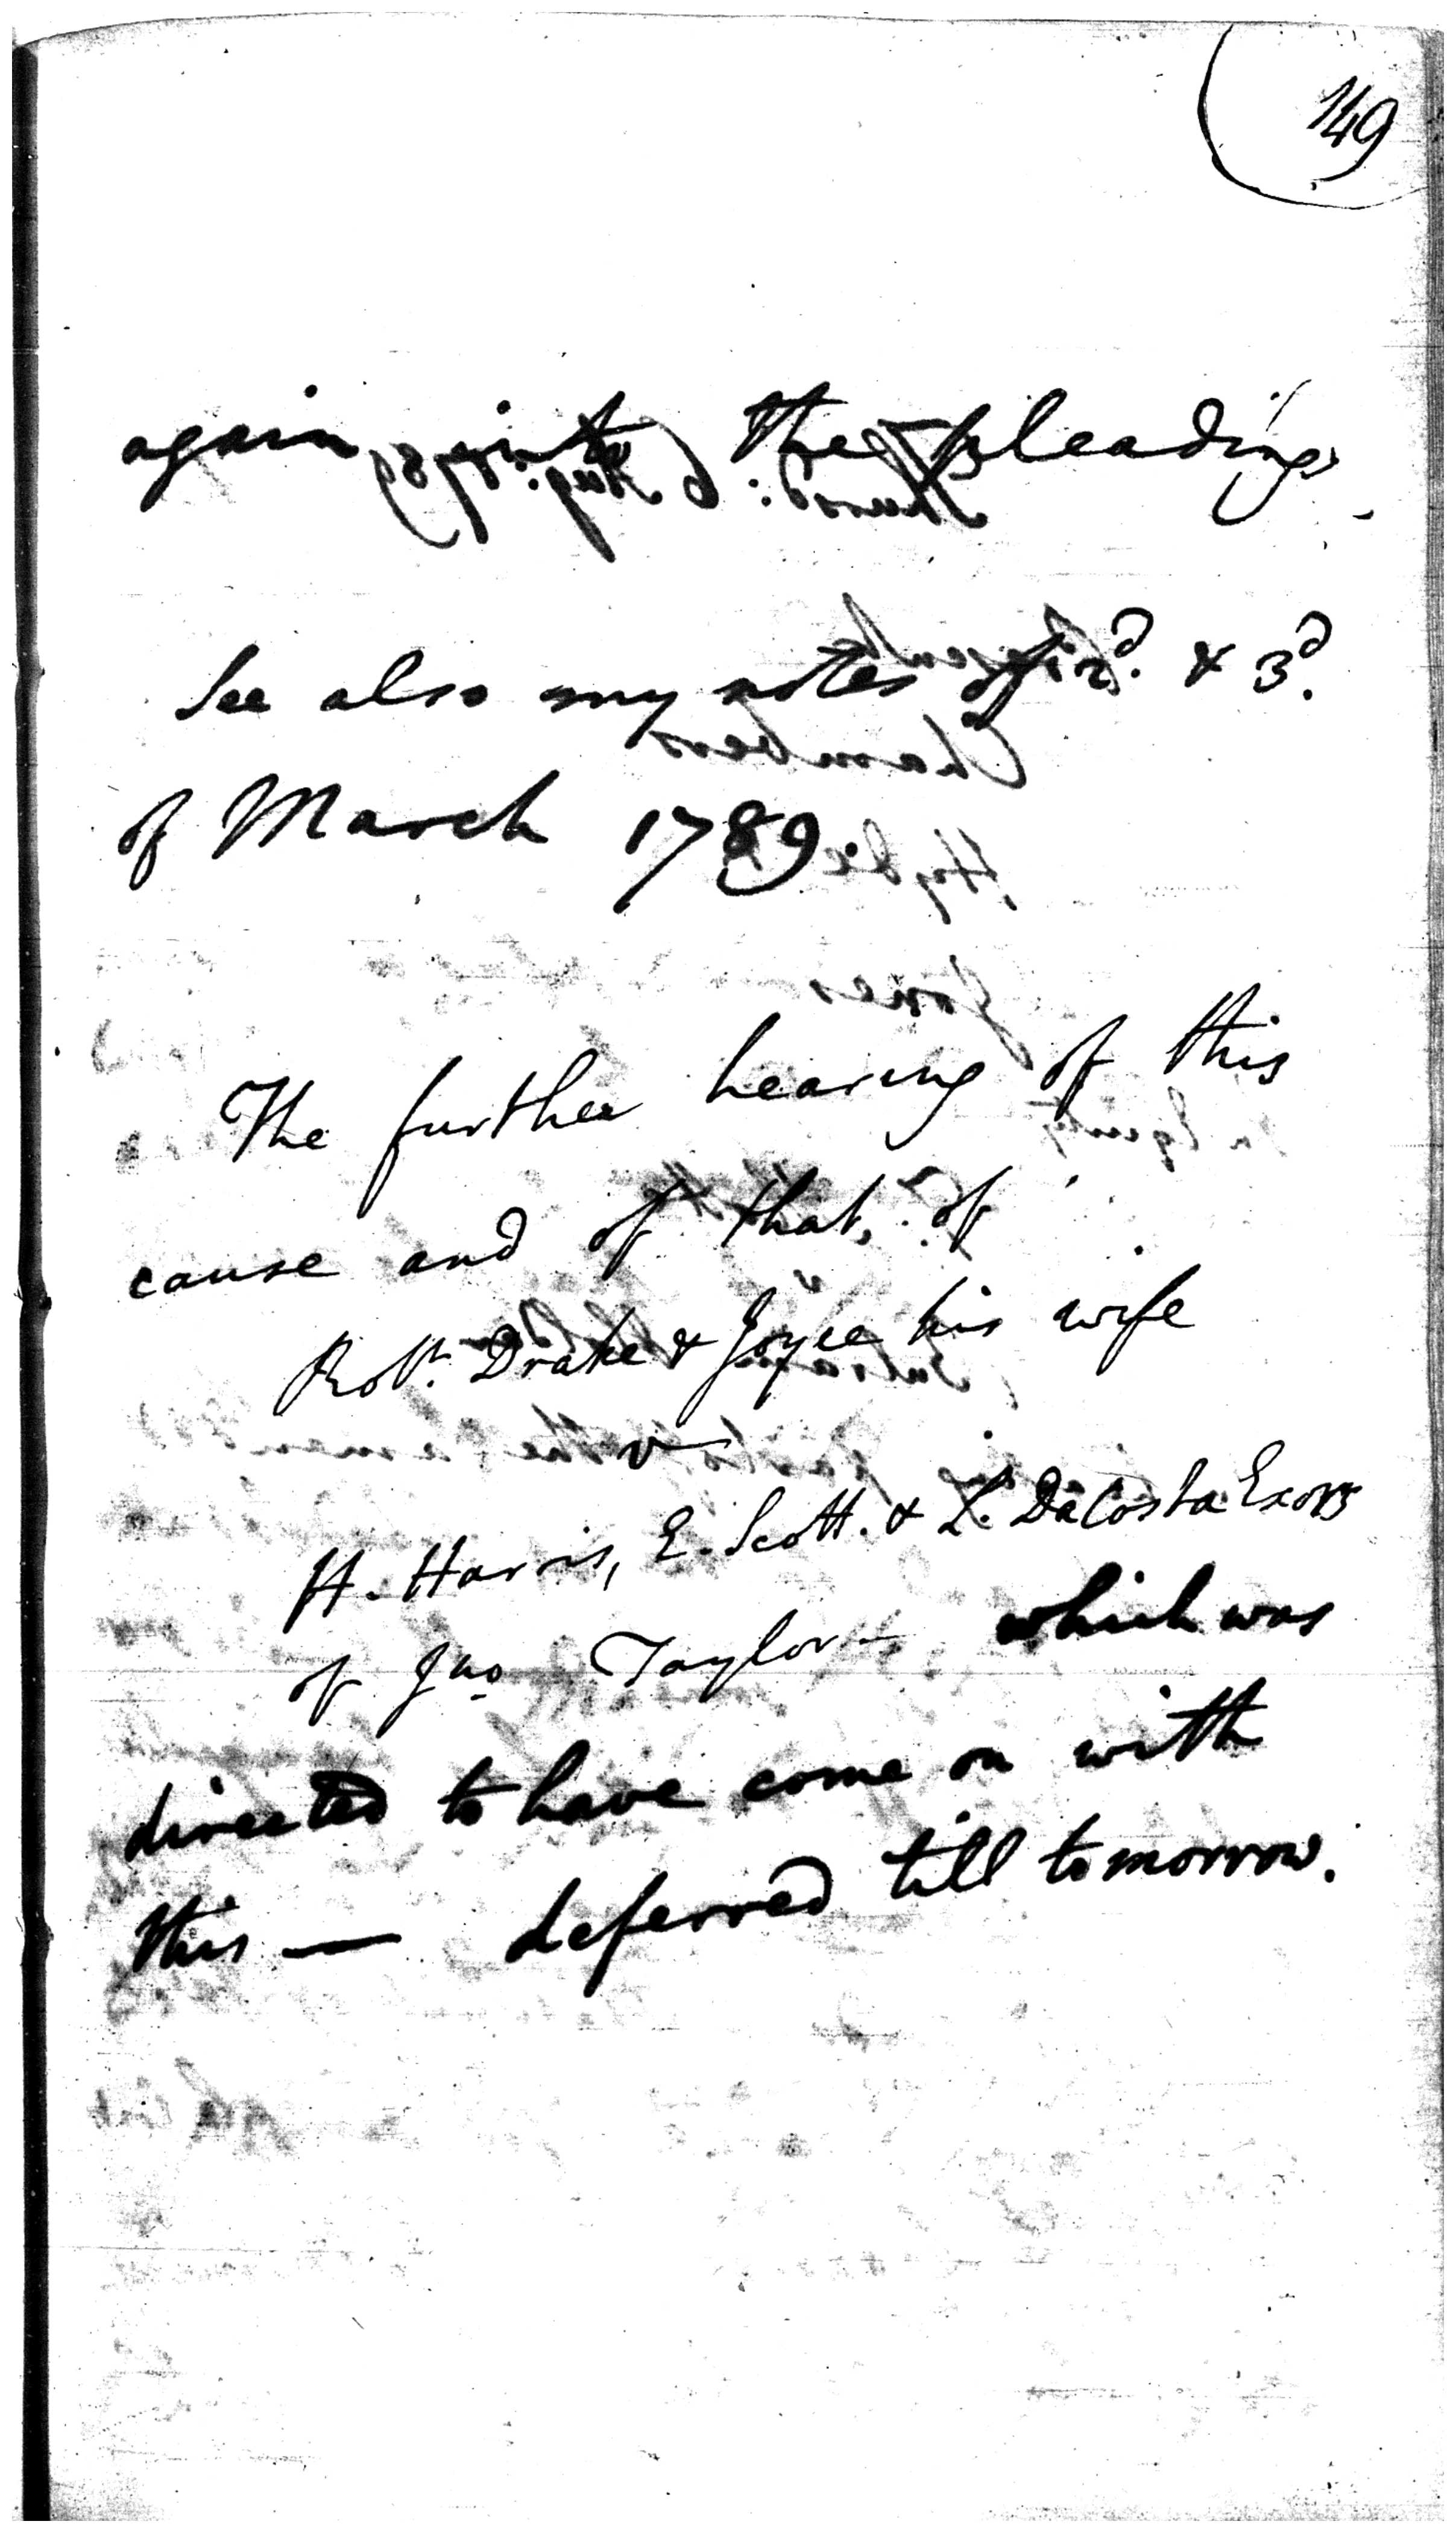 149
again into the pleadings
See also my notes of 2d. & 3d.
of March 1789
The further hearing of this
cause and of that, of
Robt. Drake & Joyce his wife
v
H. Harris, E. Scott. & L. DaCosta Exors
of Jno Taylor - which was
directed to have come on with
this — deferred till tomorrow.